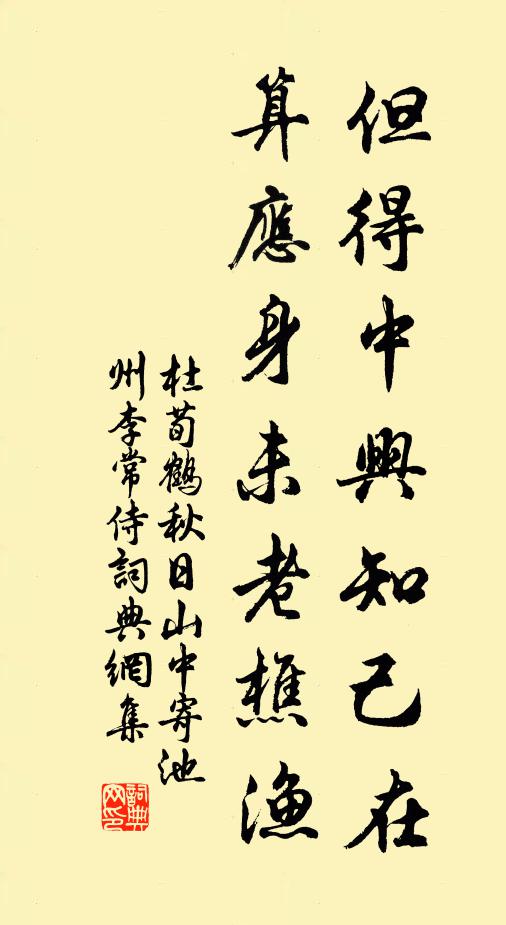 但得中興知己在
算應身未老樵漁
杜荀鶴秋日山中寄池
州李常侍詞典網集
詞典
网印